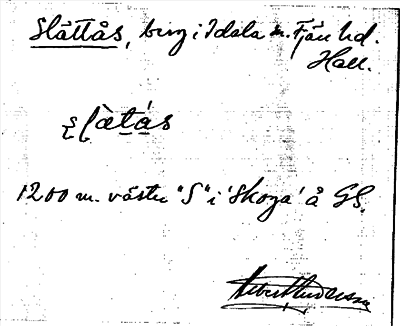 Slättås, berg i Idala sn. Fjäre hd.
Hall.
slæ̀tás
1200 m. väster "S" i 'Skoga' å GS.